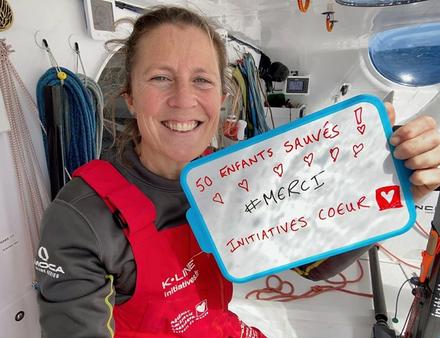 50 ENFANTS SAUVÉS !
#MERCI
INITIATIVES COEUR
K-LINE
initiatives